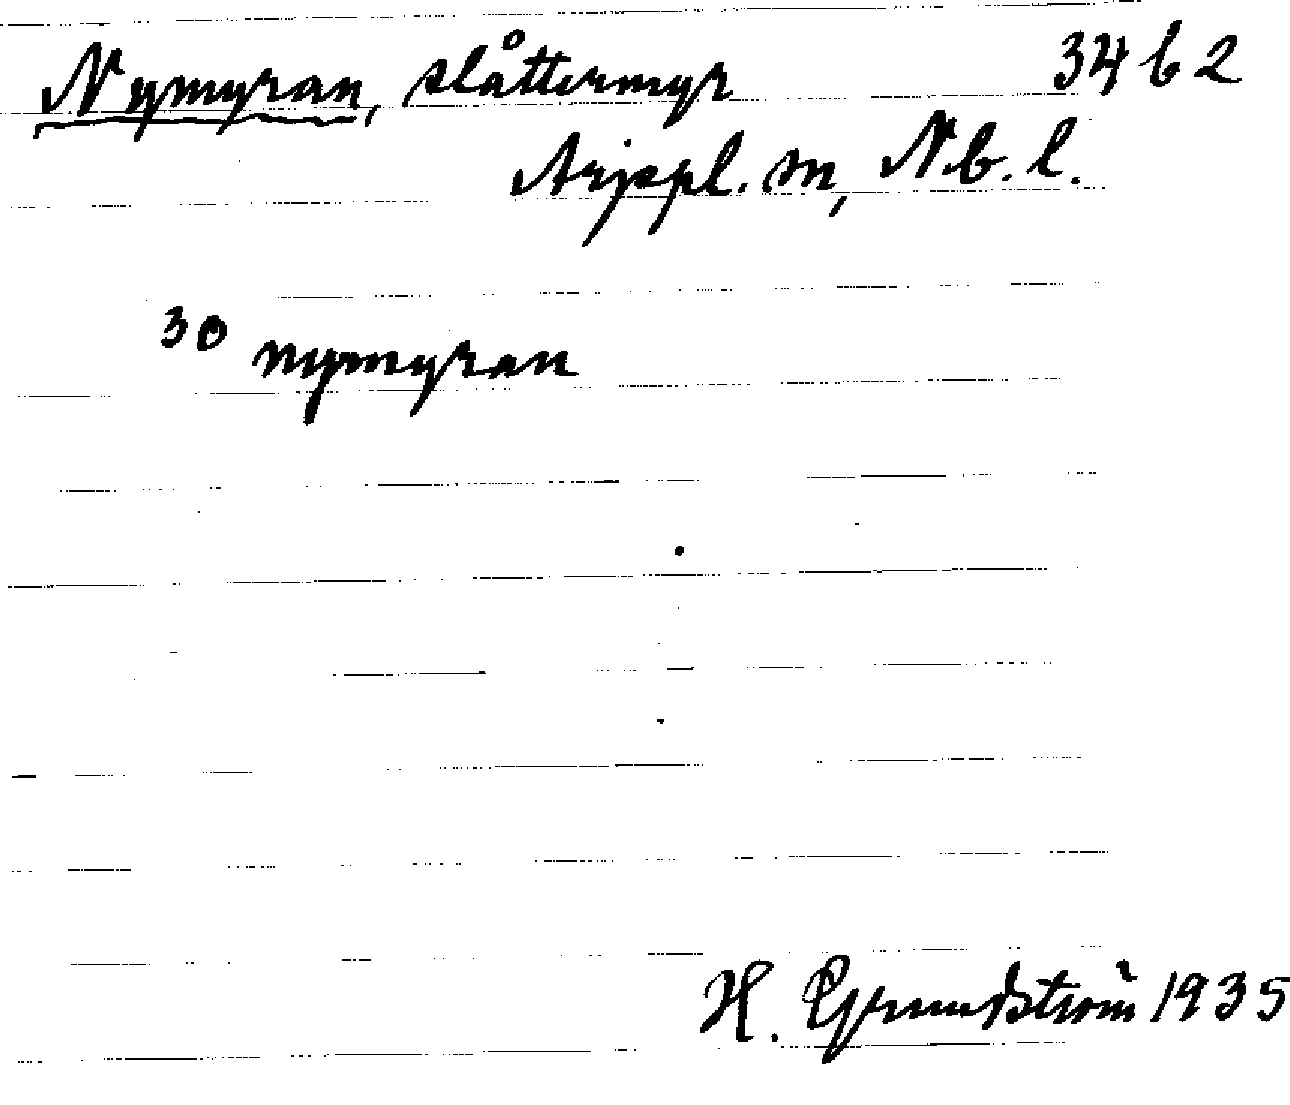 Nymyran, slåttermyr 34 b 2
Arjepl. sn, Nb. l.
30 nymyran
H. Grundström 1935